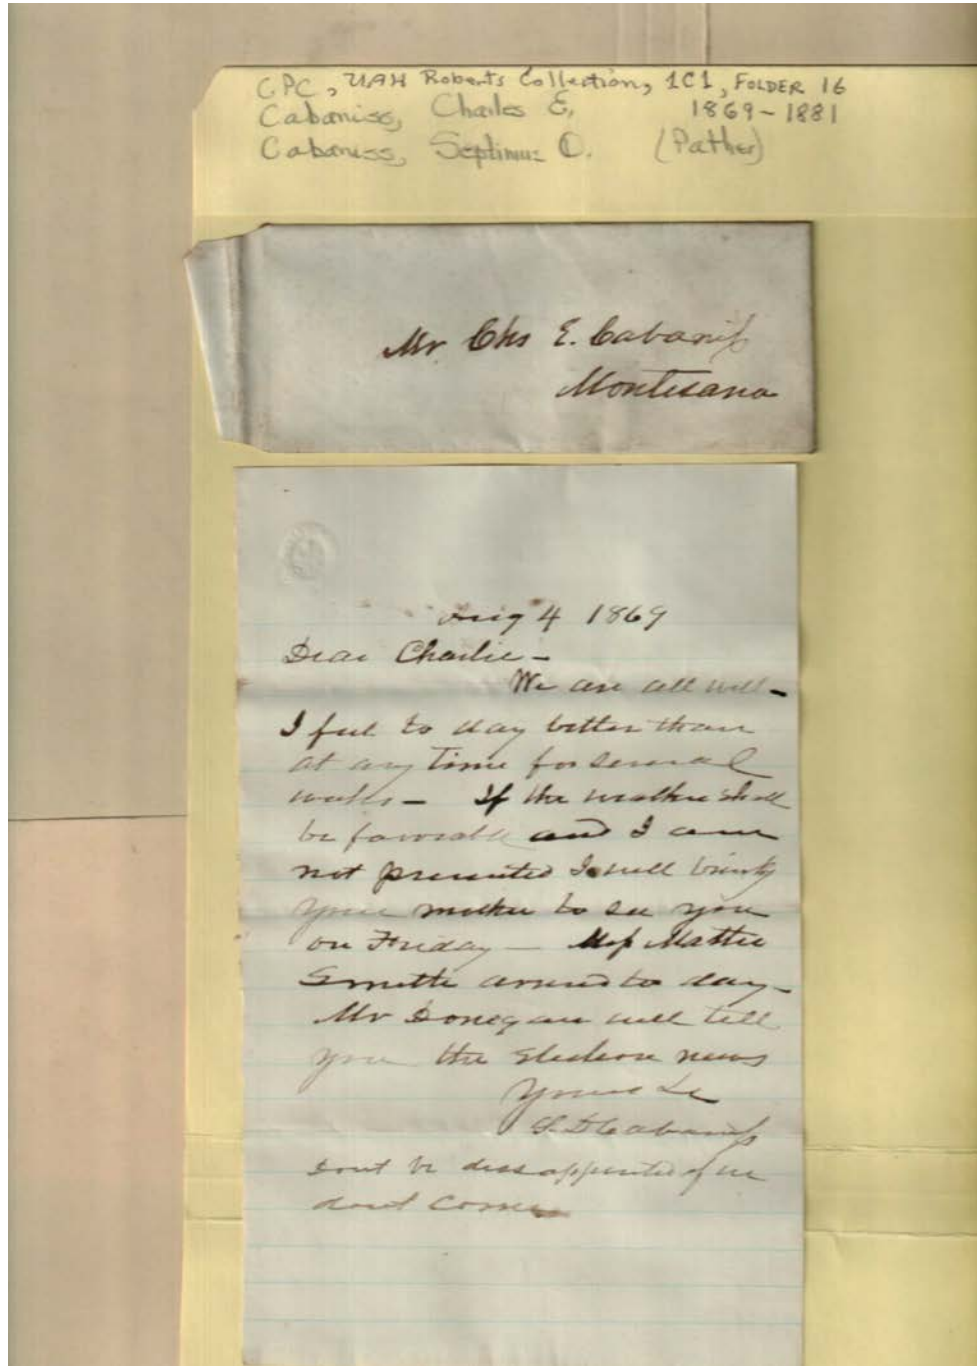 CPC, UAH Roberts Collection, 1C1, FOLDER 16
Cabaniss, Charles E. 1869-1881
Cabaniss, Septimus D. (Father)
Mr Chs E. Cabaniss
Montesano
Aug 4 1869
Dear Charlie -
We are all well -
I feel to day better than
at any time for several
weeks - If the weather shall
be favorable and I am
not prevented I will bring
your mother to see you
on Friday - Miss Mattie
Smith arrived to day -
Mr Donegan will tell
you the election news
Yours &c
S. D. Cabaniss
Dont be dissappointed if we
dont come